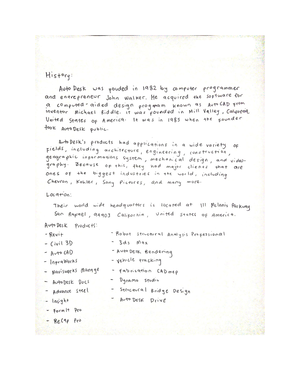 History:
AutoDesk was founded in 1982 by computer programmer
and entrepreneur John Walker. He acquired the software for
a computer-aided design program known as AutoCAD from
investor Michael Riddle. It was founded in Mill Valley, California,
United States of America. It was in 1985 when the founder
took AutoDesk public.
AutoDesk's products had applications in a wide variety of
fields, including architecture, engineering, construction,
geographic informations system, mechanical design, and video-
graphy. Because of this, they had major clients that are
ones of the biggest industries in the world, including
Chevron, Kohler, Sony Pictures, and many more.
Location:
Their world wide headquarters is located at 111 McInnis Parkway
San Rafael, 94903 California, United States of America.
AutoDesk Products:
- Revit
- Civil 3D
- AutoCAD
- InfraWorks
- Navisworks Manage
- AutoDesk Docs
- Advance Steel
- Insight
- FormIt Pro
- ReCap Pro
- Robot Structural Analysis Professional
- 3ds Max
- AutoDesk Rendering
- Vehicle Tracking
- Fabrication CADmep
- Dynamo Studio
- Structural Bridge Design
- AutoDesk Drive